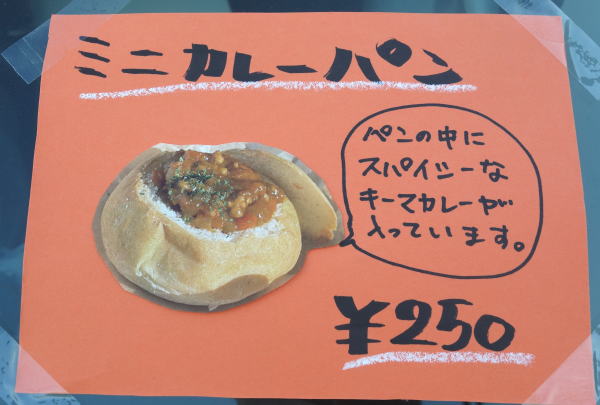 ミニカレーパン
パンの中に
スパイシーな
キーマカレーが
入っています。
¥250